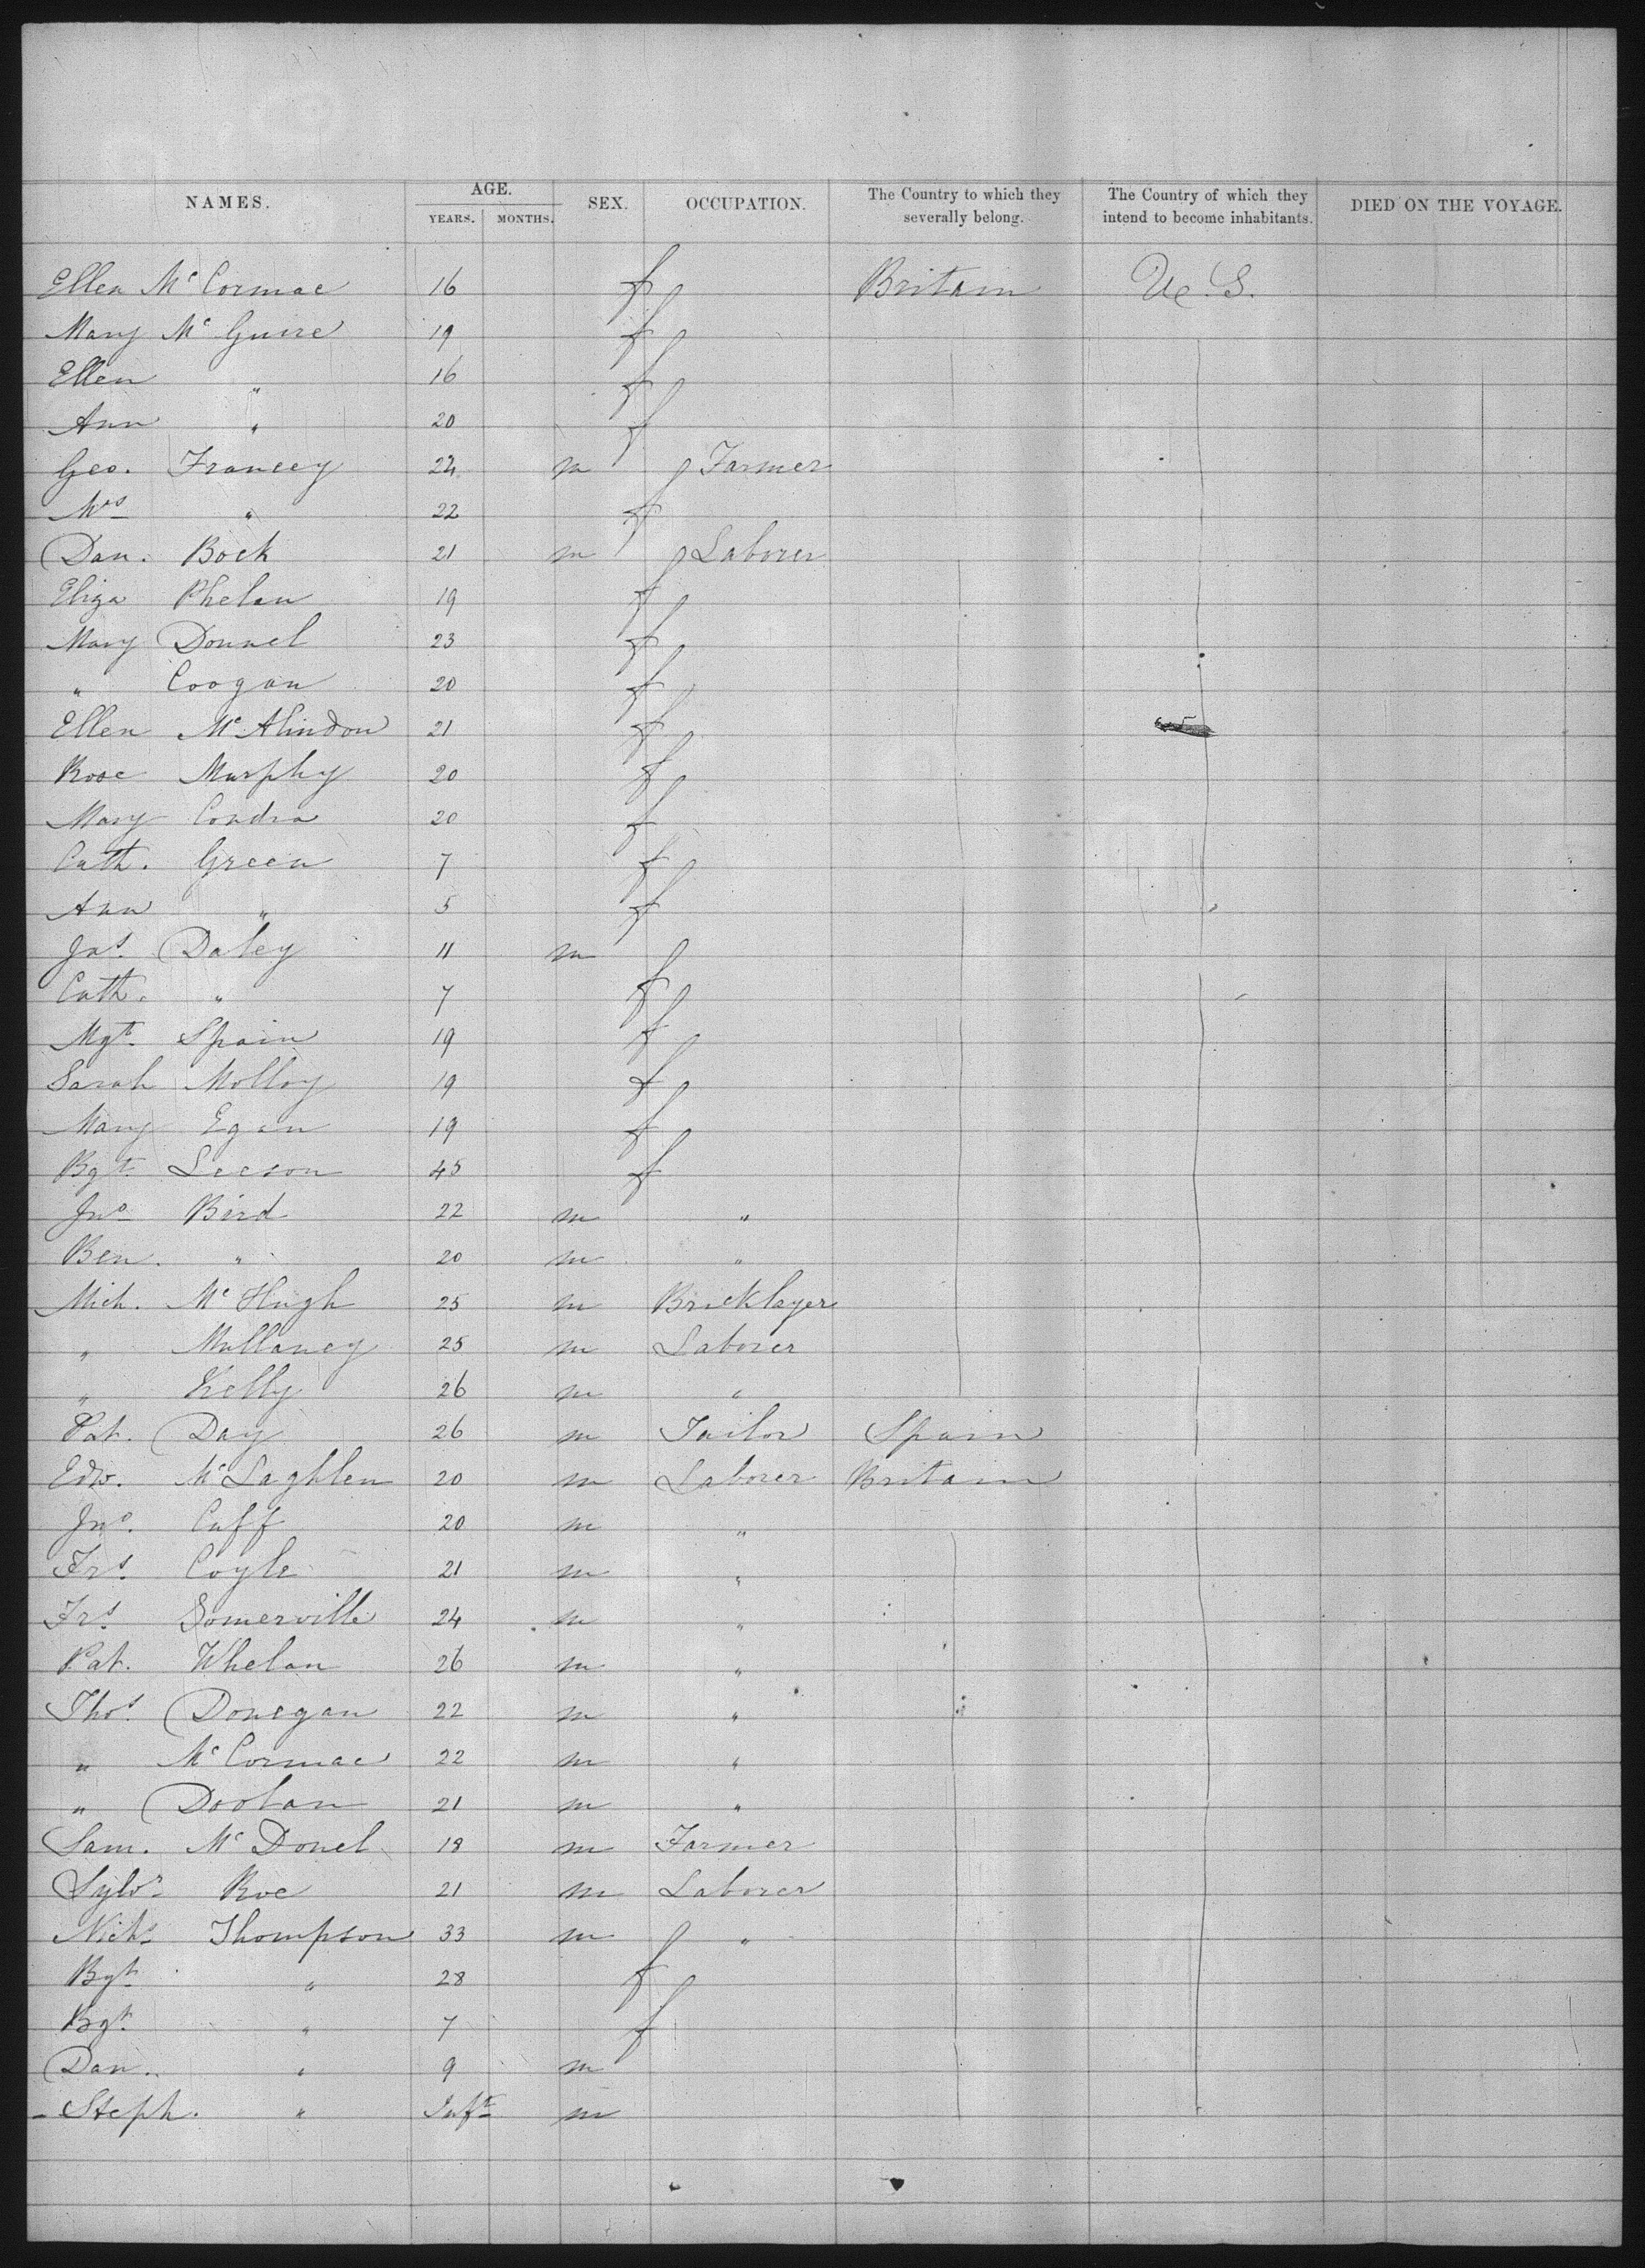 NAMES. AGE. SEX. OCCUPATION. The Country to which they severally belong. The Country of which they intend to become inhabitants. DIED ON THE VOYAGE.
YEARS. MONTHS.
Ellen Mc Cormac 16 f Britain U. S.
Mary Mc Guire 19 f
Ellen " 16 f
Ann " 20 f
Geo. Francey 24 m Farmer
Mrs " 22 f
Dan. Bock 21 m Laborer
Eliza Phelan 19 f
Mary Donnel 23 f
" Coogan 20 f
Ellen Mc Alindon 21 f
Rose Murphy 20 f
Mary Condra 20 f
Cath. Green 7 f
Ann " 5 f
Jas. Daley 11 m
Cath. " 7 f
Mgt. Spain 19 f
Sarah Molloy 19 f
Mary Egan 19 f
Bgt. Leeson 45 f
Jno Bird 22 m "
Ben. " 20 m "
Mich. Mc Hugh 25 m Bricklayer
" Mullaney 25 m Laborer
" Kelly 26 m "
Pat. Day 26 m Tailor Spain
Edw. Mc Laghlen 20 m Laborer Britain
Jno. Cuff 20 m "
Frs. Coyle 21 m "
Frs. Somerville 24 m "
Pat. Whelan 26 m "
Thos. Donegan 22 m "
" Mc Cormac 22 m "
" Doolan 21 m "
Sam. Mc Donel 18 m Farmer
Sylvr Roe 21 m Laborer
Nichs Thompson 33 m "
Bgt " 28 f
Bgt. " 7 f
Dan. " 9 m
Steph. " Inft m